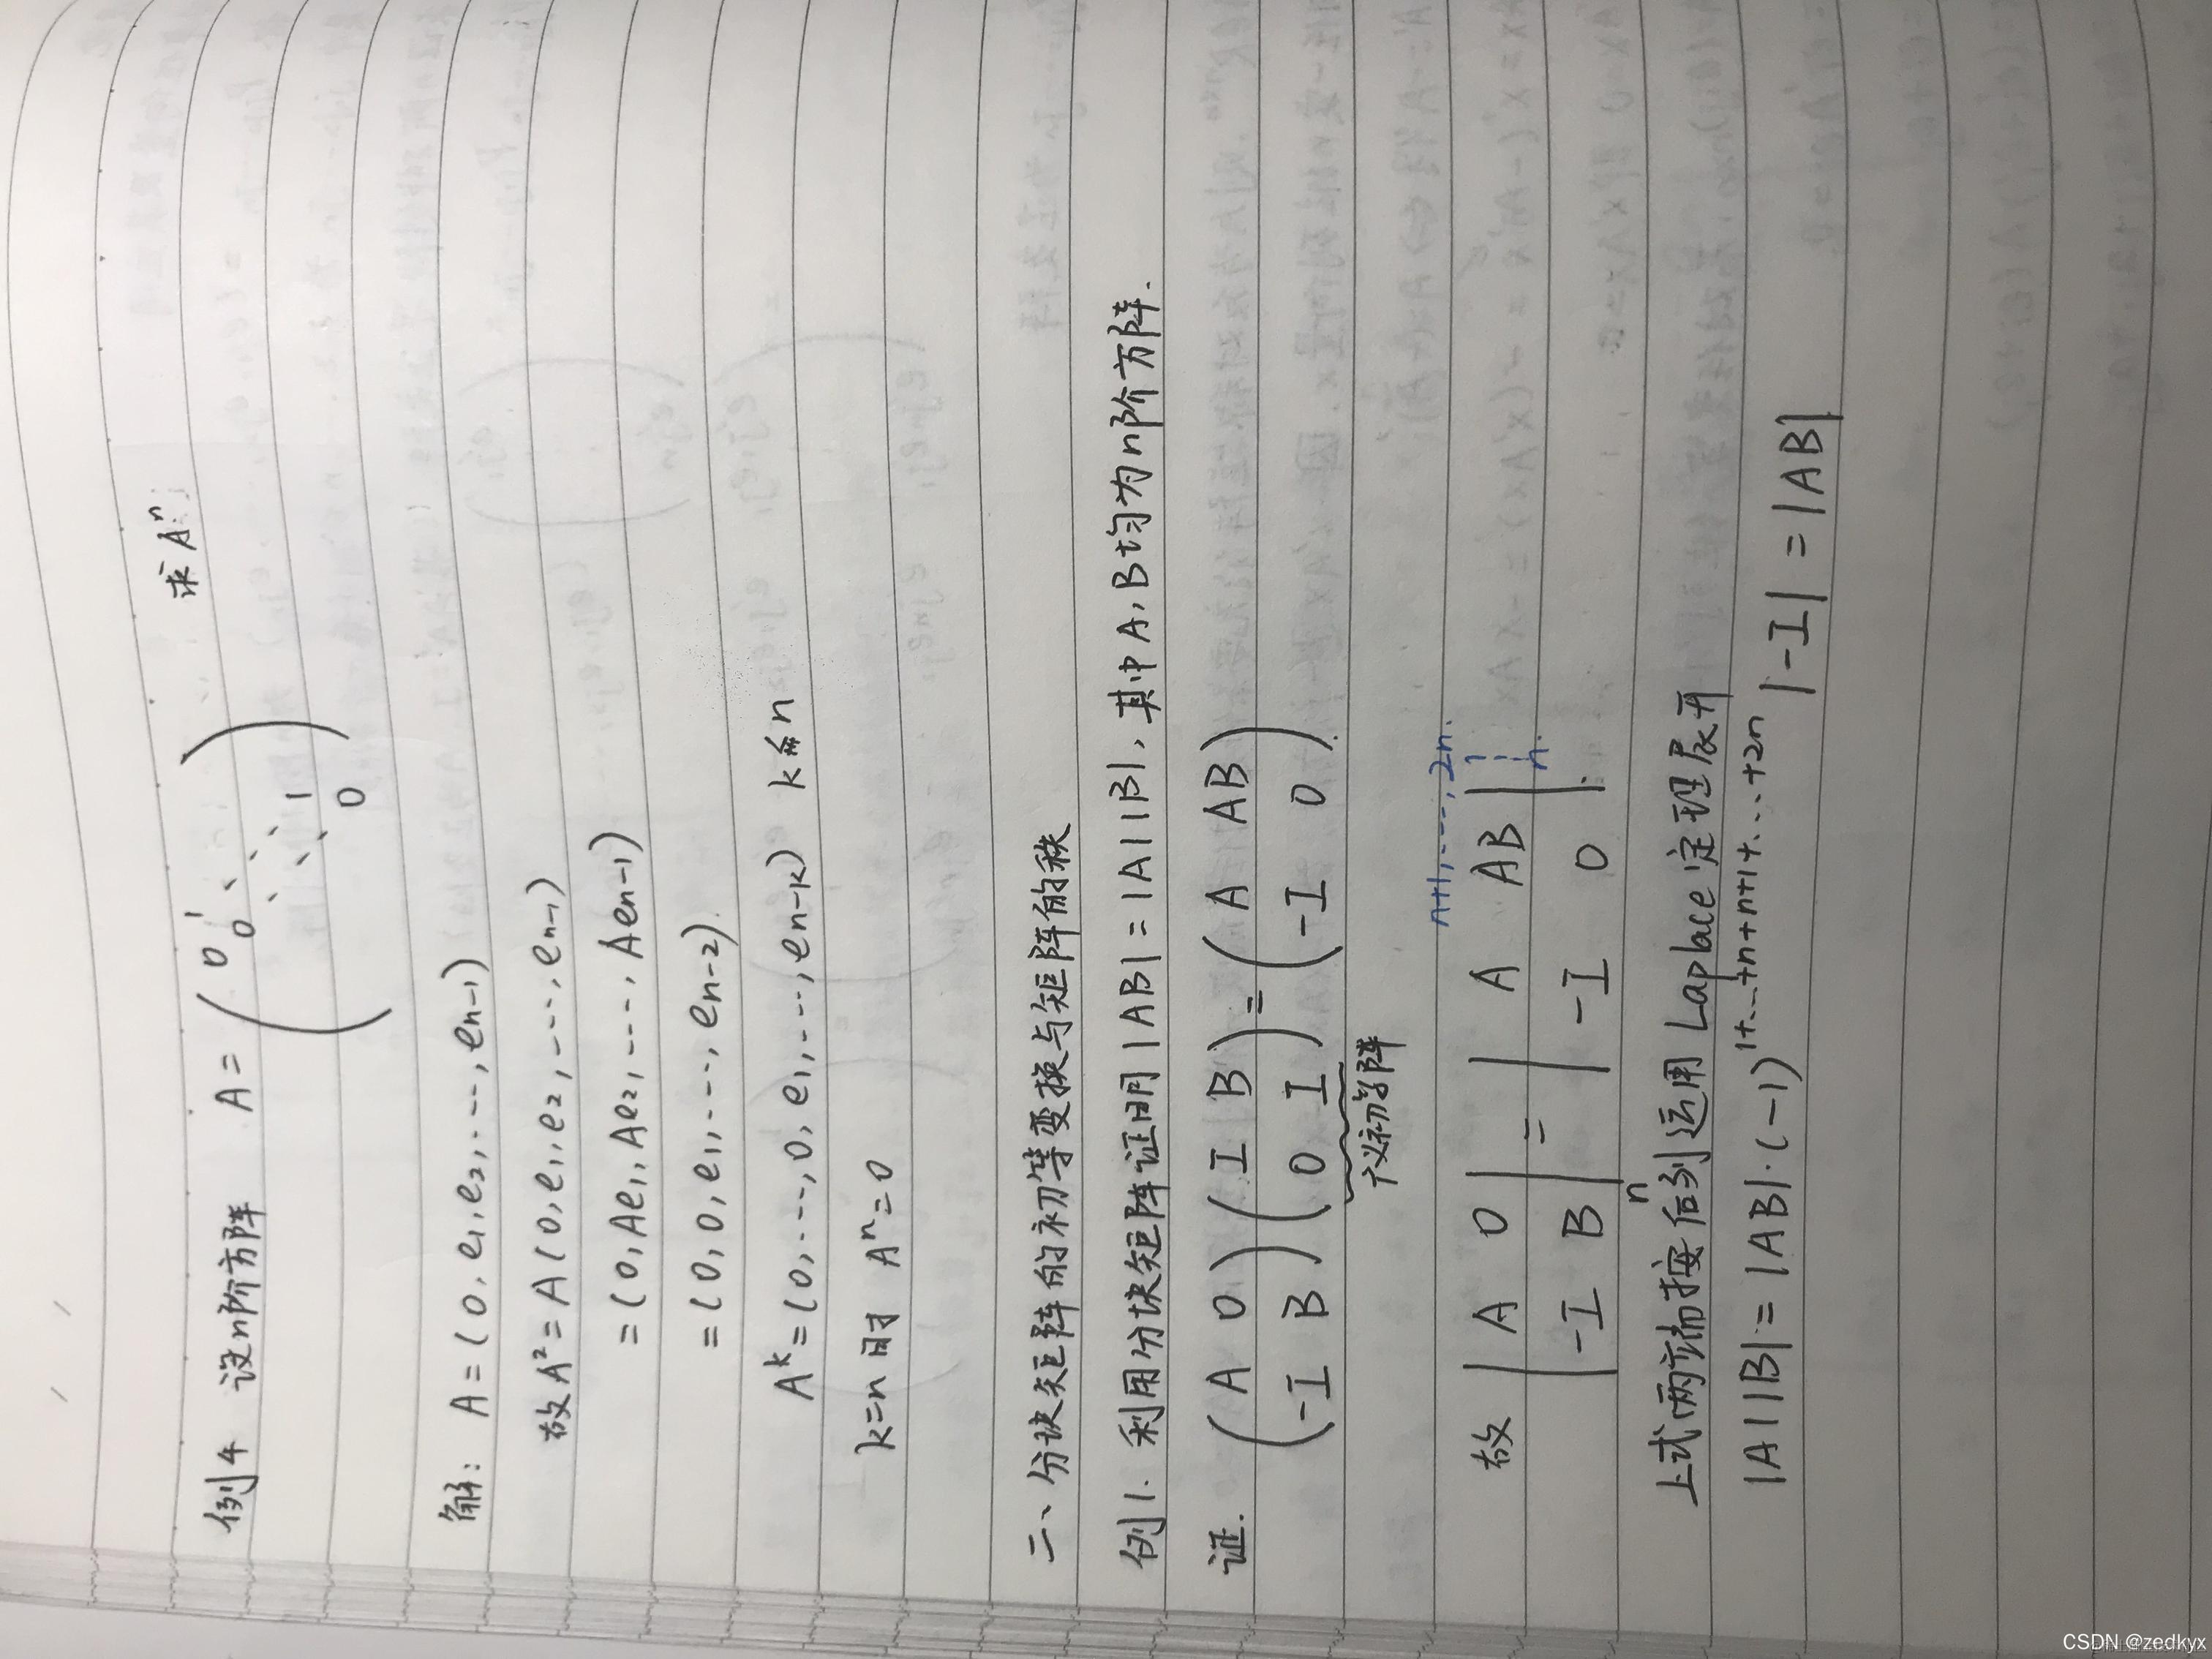 例4 设n阶方阵 A = ( 0 1
0 ⋱
⋱ 1
0 ) 求 Aⁿ.
解: A = (0, e₁, e₂, ---, eₙ₋₁)
故 A² = A (0, e₁, e₂, ---, eₙ₋₁)
= (0, Ae₁, Ae₂, ---, Aeₙ₋₁)
= (0, 0, e₁, ---, eₙ₋₂)
Aᵏ = (0, ---, 0, e₁, ---, eₙ₋ₖ) k≤n
k=n 时 Aⁿ=0
二、分块矩阵的初等变换与矩阵的秩
例1. 利用分块矩阵证明 |AB| = |A||B|, 其中A,B均为n阶方阵.
证. ( A 0 ) ( I B ) = ( A AB )
( -I B ) ( 0 I ) ( -I 0 )
广义初等阵
n+1, ---, 2n.
故 | A 0 | = | A AB | 1
| -I B | | -I 0 | n.
上式两端按后n列运用 Laplace 定理展开
|A||B| = |AB|·(-1)^{1+...+n+n+1+...+2n} |-I| = |AB|
CSDN @zedkyx